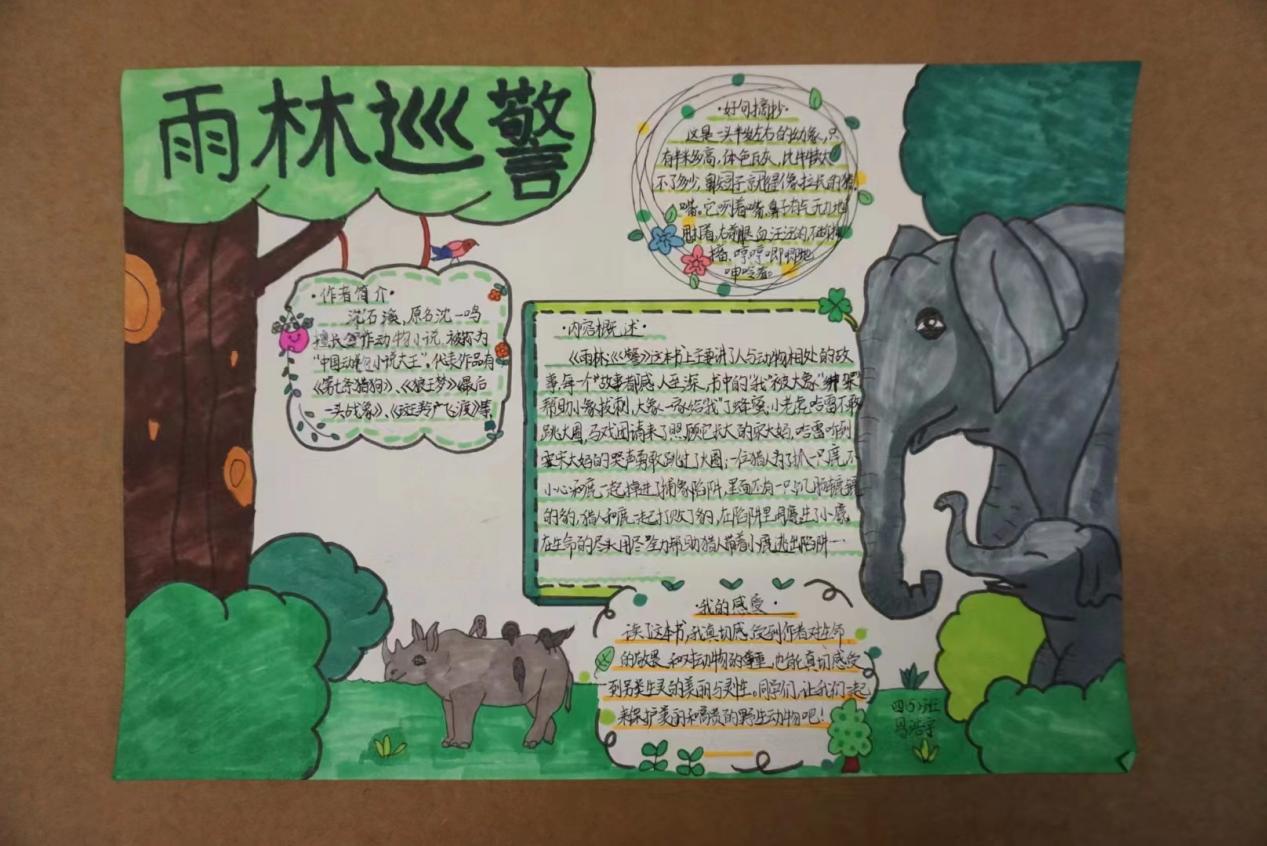 雨林巡警
·作者简介·
沈石溪，原名沈一鸣
擅长写作动物小说，被称为
“中国动物小说大王”。代表作品有
《第七条猎狗》、《狼王梦》《最后
一头战象》、《斑羚飞渡》等
·好句摘抄·
这是一头半岁左右的幼象，只
有半米多高，体色瓦灰，比牛犊大
不了多少，鼻子就像拉长的猪
嘴。它咧着嘴，鼻子有气无力地
甩打着，右前腿血汪汪的，不断抽
搐，哼哼唧唧地
呻吟着。
·内容概述·
《雨林巡警》这本书上主要讲了人与动物相处的故
事，每一个故事都感人至深，书中的“我”被大象“绑架”
帮助小象拔刺，大象一家给“我”了蜂蜜，小老虎哈雷不敢
跳火圈，马戏团请来了照顾它长大的宋大妈，哈雷听到
宋大妈的哭声勇敢跳过了火圈；一位猎人为了抓一只鹿，不
小心和鹿一起掉进了捕象陷阱，里面还有一只饥肠辘辘
的豹，猎人和鹿一起打败了豹，在陷阱里母鹿生了小鹿，
在生命的尽头用尽全力帮助猎人带着小鹿逃出陷阱…
·我的感受·
读了这本书，我真切感受到作者对生命
的敬畏和对动物的尊重，也能真切感受
到另类生灵的美丽与灵性。同学们，让我们一起
来保护美丽和高贵的野生动物吧！
四(1)班